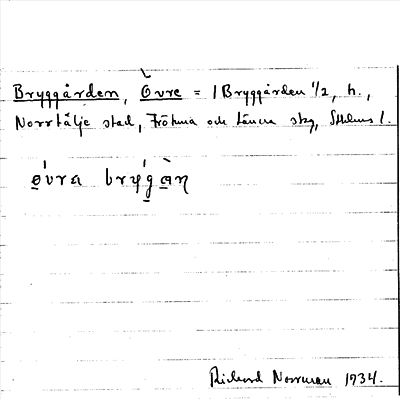 Bryggården, Övre = 1 Bryggården 1/2, h.,
Norrtälje stad, Frötuna och Länna skg, Sthlms l.
Rickard Norrman 1934.